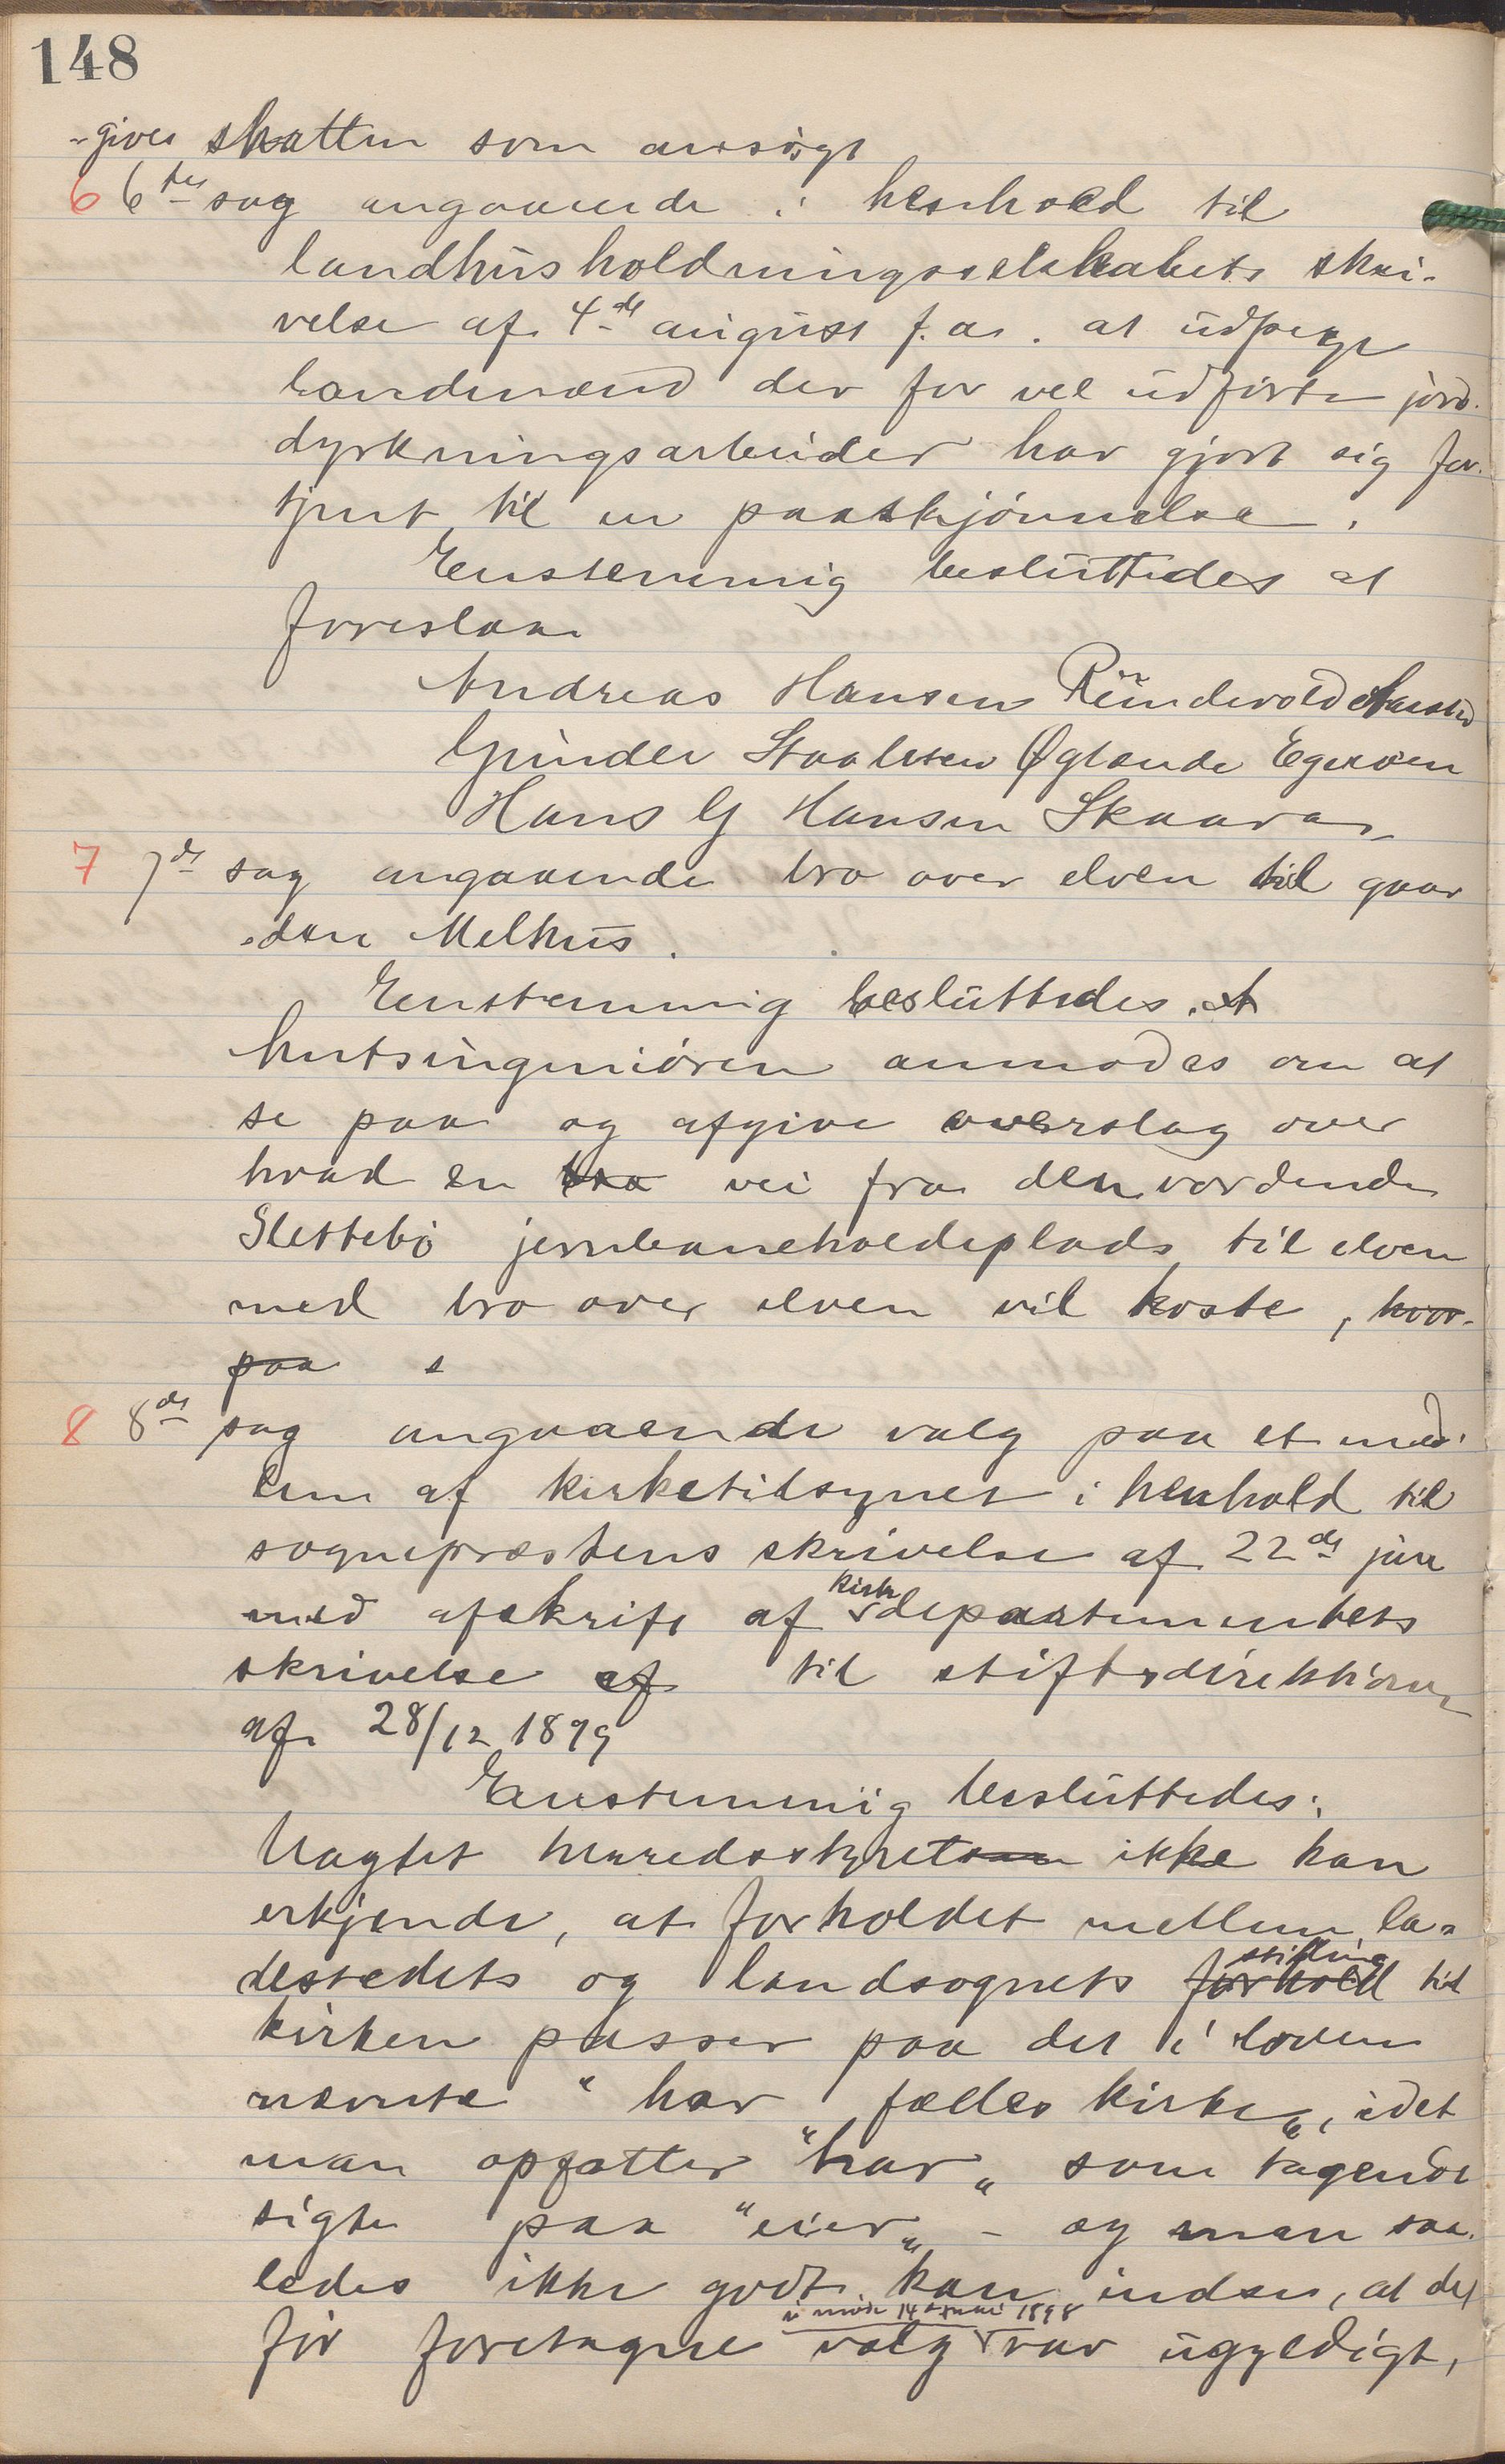 148
-gives skatten som ansøgt
6 6te sag angaaende i henhold til
landhusholdningsselskabets skri-
velse af 4de august f.a. at udpege
landmænd der for vel udførte jord-
dyrkningsarbeider har gjort sig for-
tjent til en paaskjønnelse.
Enstemmig besluttedes at
foreslaa
Andreas Hansen Rundevold
Gunder Staalesen Øglænde Egerøen
Hans G Hansen Skaara
7 7de sag angaaende bro over elven til gaar
-den Melhus.
Enstemmig besluttedes at
amtsingeniøren anmodes om at
se paa og afgive overslag over
hvad en bro vei fra den vordende
Slettebø jernbaneholdeplads til elven
med bro over elven vil koste, hvor-
paa s
8 8de sag angaaende valg paa et med-
lem af kirketilsynet i henhold til
sognepræstens skrivelse af 22de juni
med afskrift af kirkedepartementets
skrivelse af til stiftsdirektionen
af 28/12 1899
Enstemmig besluttedes:
Uagtet herredsstyret som ikke kan
erkjende, at forholdet mellem la-
destedets og landsognets forhold stilling til
kirken passer paa det i loven
nævnte "har fælles kirke", idet
man opfatter "har" som tagende
sigte paa "eier" – og man saa-
ledes ikke godt kan indse, at det
før foretagne valg i møde 14de juni 1898 var ugyldigt,